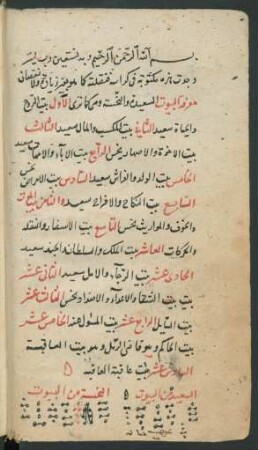 بسم الله الرحمن الرحيم وبه نستعين
وجدت هذه مكتوبة في كراس فنقلته كما هو بغير زيادة ولا نقصان
معرفة البيوت السعيدة والنحسة الأول بيت الروح
والحياة سعيد الثاني بيت المكسب والمال سعيد الثالث
بيت الاخوة والاصهار نحس الرابع بيت الآباء
الخامس بيت الولد والفراش سعيد السادس بيت الامراض نحس
السابع بيت النكاح والافراح سعيد الثامن بيت
والخوف والمواريث نحس التاسع بيت الاسفار والنقلة
والحركات العاشر بيت الملك والسلطان سعيد
الحادي عشر بيت الرجاء والامل سعيد الثاني عشر
بيت الشقاء والاعداء نحس الثالث عشر
بيت السايل الرابع عشر بيت المسؤل عنه الخامس عشر
بيت الحاكم وهو قاضي الرمل وهو بيت العاقبة
السادس عشر بيت عاقبة العاقبة
السعيد من البيوت النحسة من البيوت